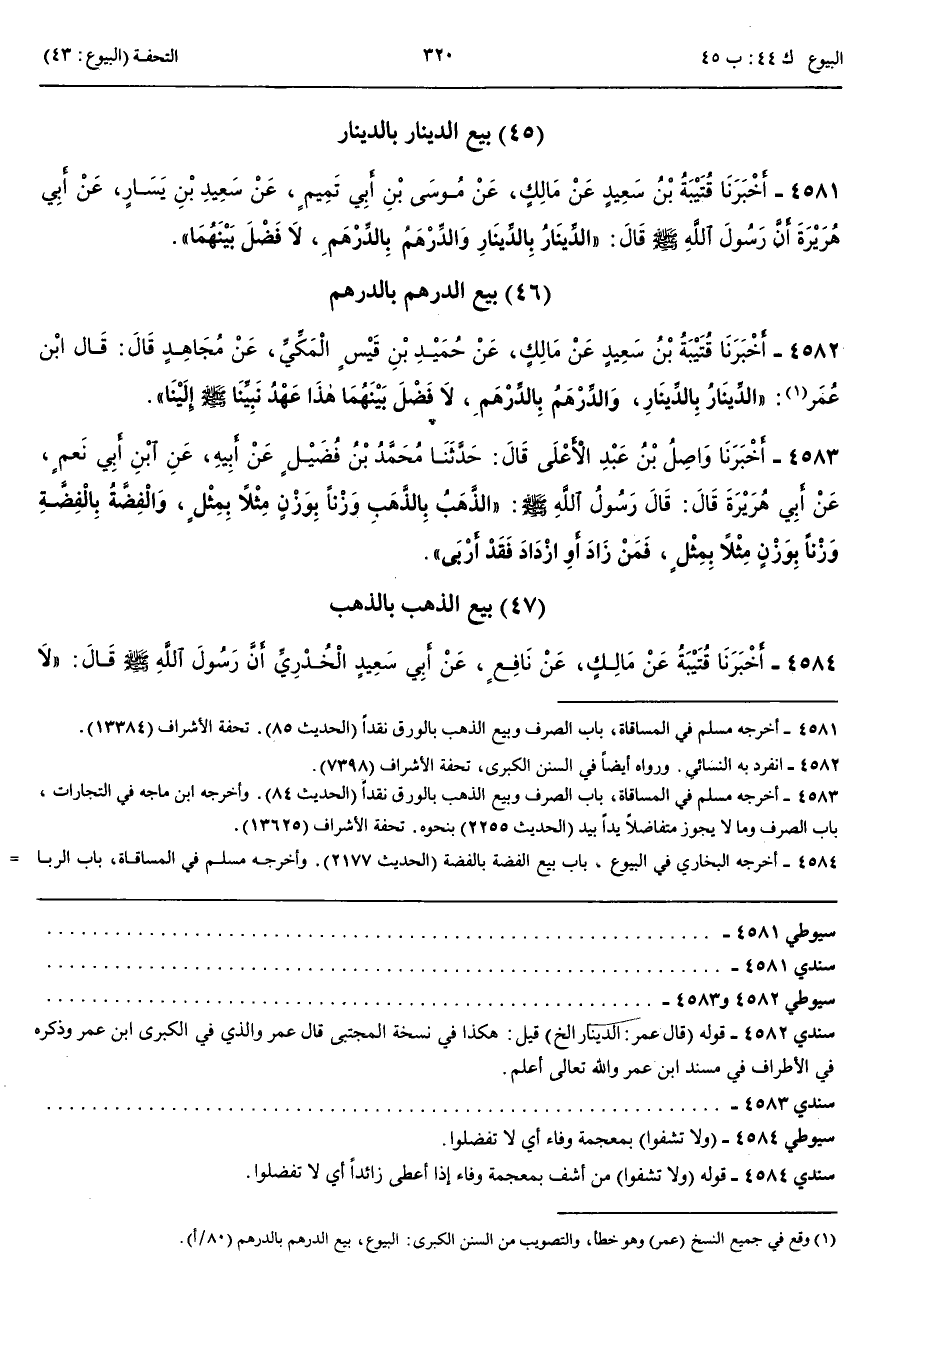 البيوع ك ٤٤: ب ٤٥ ٣٢٠ التحفة (البيوع: ٤٣)
(٤٥) بيع الدينار بالدينار
٤٥٨١ ـ أَخْبَرَنَا قُتَيْبَةُ بْنُ سَعِيدٍ عَنْ مَالِكٍ، عَنْ مُوسَى بْنِ أَبِي تَمِيمٍ، عَنْ سَعِيدِ بْنِ يَسَارٍ، عَنْ أَبِي
هُرَيْرَةَ أَنَّ رَسُولَ اللَّهِ ﷺ قَالَ: «الدِّينَارُ بِالدِّينَارِ وَالدِّرْهَمُ بِالدِّرْهَمِ، لَا فَضْلَ بَيْنَهُمَا».
(٤٦) بيع الدرهم بالدرهم
٤٥٨٢ ـ أَخْبَرَنَا قُتَيْبَةُ بْنُ سَعِيدٍ عَنْ مَالِكٍ، عَنْ حُمَيْدِ بْنِ قَيْسٍ الْمَكِّيِّ، عَنْ مُجَاهِدٍ قَالَ: قَالَ ابْن
عُمَر(١): «الدِّينَارُ بِالدِّينَارِ، وَالدِّرْهَمُ بِالدِّرْهَمِ، لَا فَضْلَ بَيْنَهُمَا هٰذَا عَهْدُ نَبِيِّنَا ﷺ إِلَيْنَا».
٤٥٨٣ ـ أَخْبَرَنَا وَاصِلُ بْنُ عَبْدِ الْأَعْلَى قَالَ: حَدَّثَنَا مُحَمَّدُ بْنُ فُضَيْلٍ عَنْ أَبِيهِ، عَنِ ابْنِ أَبِي نَعْمٍ،
عَنْ أَبِي هُرَيْرَةَ قَالَ: قَالَ رَسُولُ اللَّهِ ﷺ: «الذَّهَبُ بِالذَّهَبِ وَزْناً بِوَزْنٍ مِثْلًا بِمِثْلٍ، وَالْفِضَّةُ بِالْفِضَّةِ
وَزْناً بِوَزْنٍ مِثْلًا بِمِثْلٍ، فَمَنْ زَادَ أَوِ ازْدَادَ فَقَدْ أَرْبَى».
(٤٧) بيع الذهب بالذهب
٤٥٨٤ ـ أَخْبَرَنَا قُتَيْبَةُ عَنْ مَالِكٍ، عَنْ نَافِعٍ، عَنْ أَبِي سَعِيدٍ الْخُدْرِيِّ أَنَّ رَسُولَ اللَّهِ ﷺ قَالَ: «لَا
٤٥٨١ ـ أخرجه مسلم في المساقاة، باب الصرف وبيع الذهب بالورق نقداً (الحديث ٨٥). تحفة الأشراف (١٣٣٨٤).
٤٥٨٢ ـ انفرد به النسائي. ورواه أيضاً في السنن الكبرى، تحفة الأشراف (٧٣٩٨).
٤٥٨٣ ـ أخرجه مسلم في المساقاة، باب الصرف وبيع الذهب بالورق نقداً (الحديث ٨٤). وأخرجه ابن ماجه في التجارات،
باب الصرف وما لا يجوز متفاضلاً يداً بيد (الحديث ٢٢٥٥) بنحوه. تحفة الأشراف (١٣٦٢٥).
٤٥٨٤ ـ أخرجه البخاري في البيوع، باب بيع الفضة بالفضة (الحديث ٢١٧٧). وأخرجه مسلم في المساقاة، باب الربا =
سيوطي ٤٥٨١ ـ . . . . . . . . . . . . . . . . . . . .
سندي ٤٥٨١ ـ . . . . . . . . . . . . . . . . . . . .
سيوطي ٤٥٨٢ و٤٥٨٣ ـ . . . . . . . . . . . . . . . . . . . .
سندي ٤٥٨٢ ـ قوله (قال عمر: الدينار الخ) قيل: هكذا في نسخة المجتبى قال عمر والذي في الكبرى ابن عمر وذكره
في الأطراف في مسند ابن عمر والله تعالى أعلم.
سندي ٤٥٨٣ ـ . . . . . . . . . . . . . . . . . . . .
سيوطي ٤٥٨٤ ـ (ولا تشفوا) بمعجمة وفاء أي لا تفضلوا.
سندي ٤٥٨٤ ـ قوله (ولا تشفوا) من أشف بمعجمة وفاء إذا أعطى زائداً أي لا تفضلوا.
(١) وقع في جميع النسخ (عمر) وهو خطأ، والتصويب من السنن الكبرى: البيوع، بيع الدرهم بالدرهم (٨٠/أ).